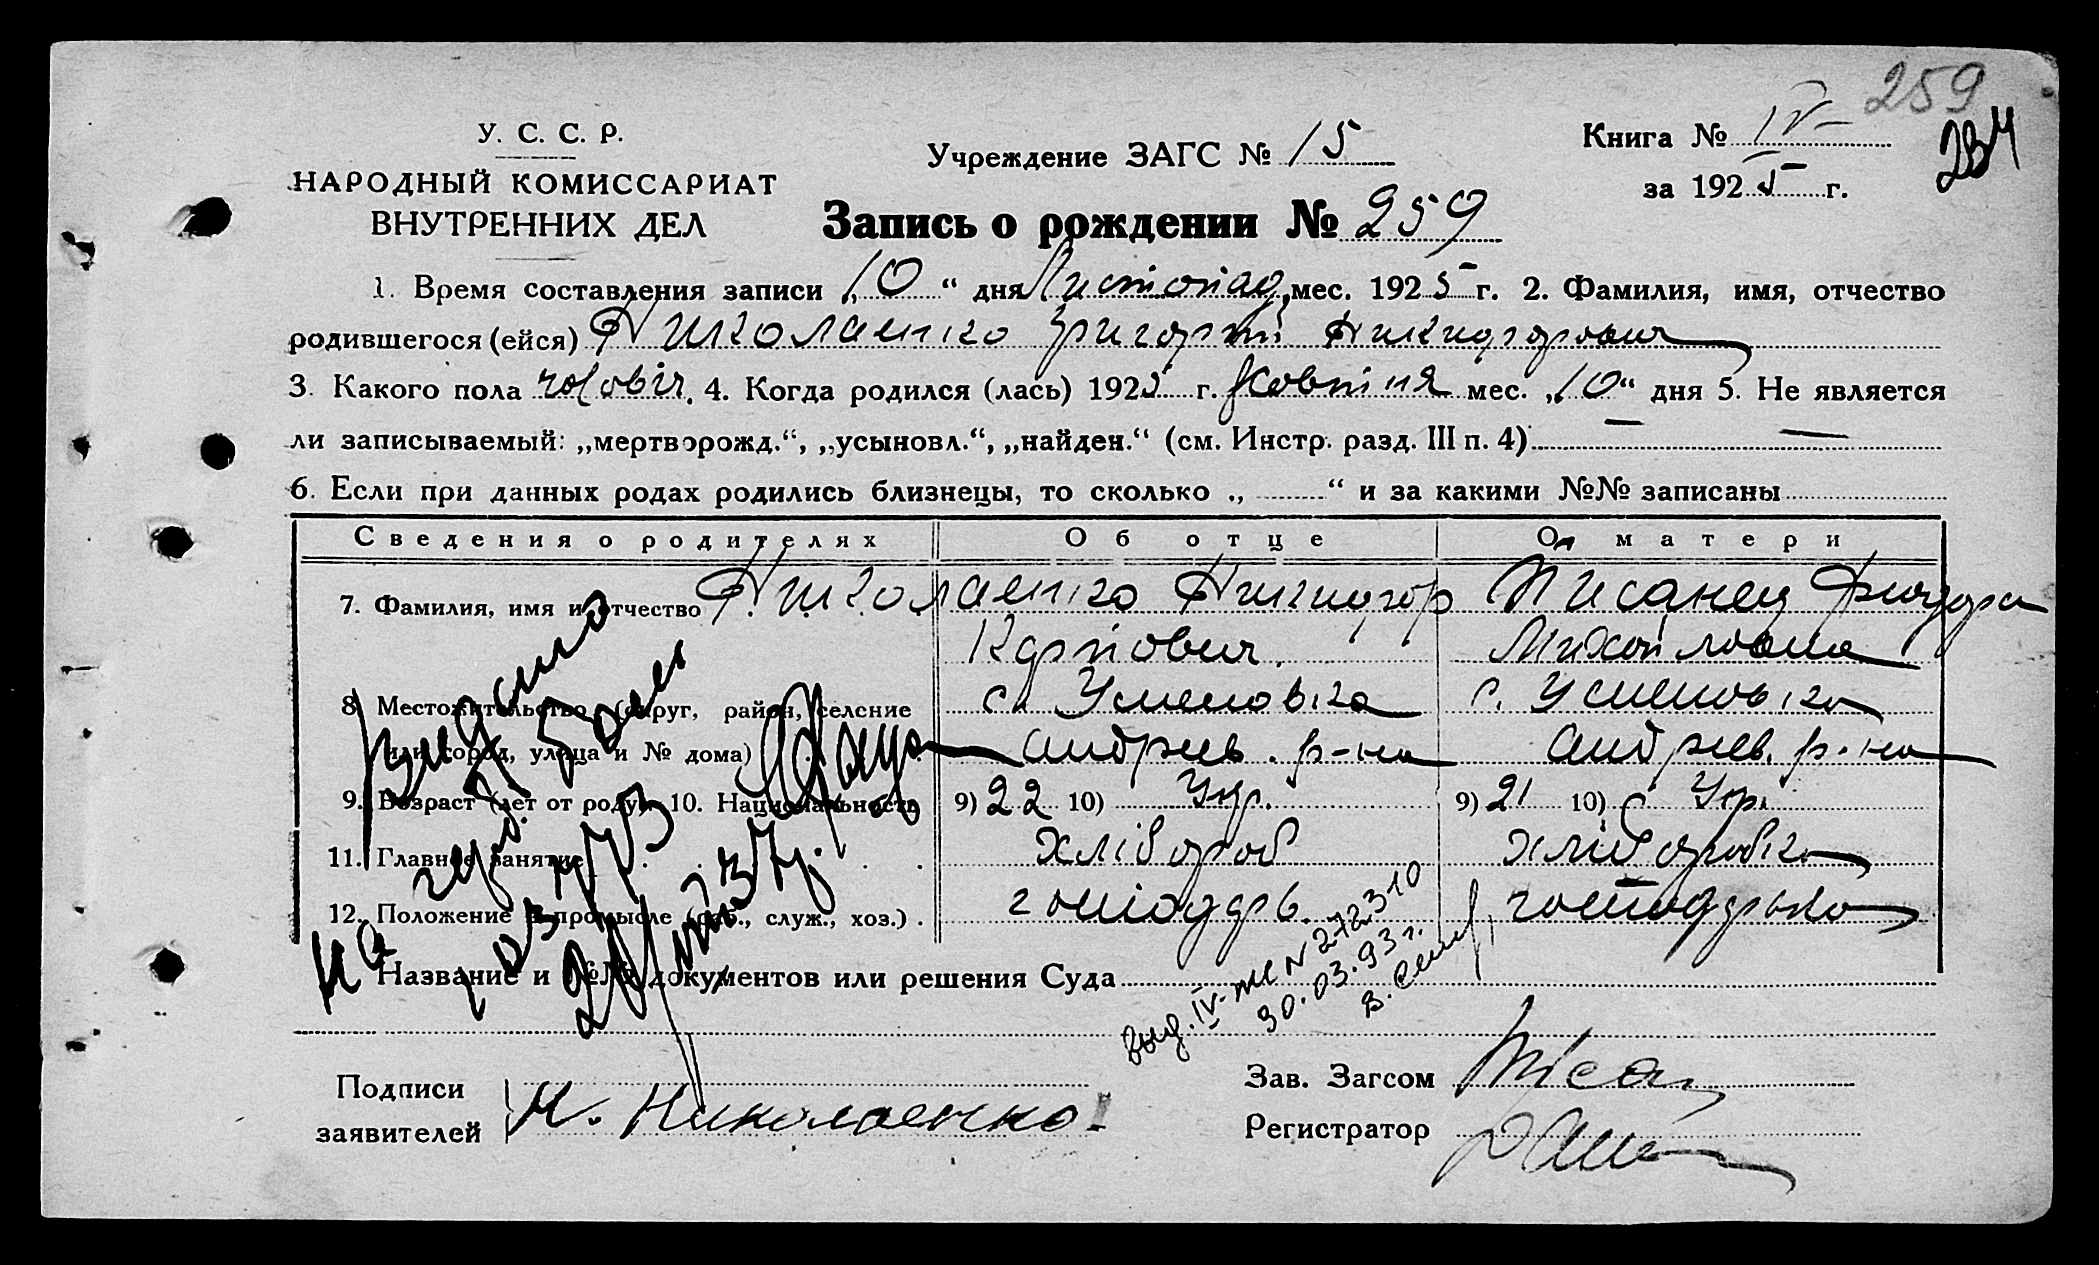 259
234
У. С. С. Р.
НАРОДНЫЙ КОМИССАРИАТ
ВНУТРЕННИХ ДЕЛ
Учреждение ЗАГС № 15
Книга № IV
за 1925 г.
Запись о рождении № 259
1. Время составления записи „10“ дня Листопад. мес. 1925 г. 2. Фамилия, имя, отчество
родившегося (ейся) Николаенко Григорій Никифорович
3. Какого пола чоловіч. 4. Когда родился (лась) 1925 г. Жовтня мес. „10“ дня 5. Не является
ли записываемый: „мертворожд.“, „усыновл.“, „найден.“ (см. Инстр. разд. III п. 4) — —
6. Если при данных родах родились близнецы, то сколько „ “ и за какими №№ записаны
Сведения о родителях Об отце О матери
7. Фамилия, имя и отчество Николаенко Никифор Писанец
Карпович. Михайловна
8. Местожительство (округ, район, селение с. Успеновка с. Успеновка
или город, улица и № дома) Андреев. р-на Андреев. р-на
9. Возраст (лет от роду) 10. Национальность 9) 22 10) Укр. 9) 21 10) Укр.
11. Главное занятие хлібороб хліборобка
12. Положение в промысле (раб., служ., хоз.) господарь. господарька
Видано
на
Название и №№ документов или решения Суда
выд. IV-ЖС N 272310
30.03.93 г.
Подписи
заявителей Н. Николаенко
Зав. Загсом
Регистратор